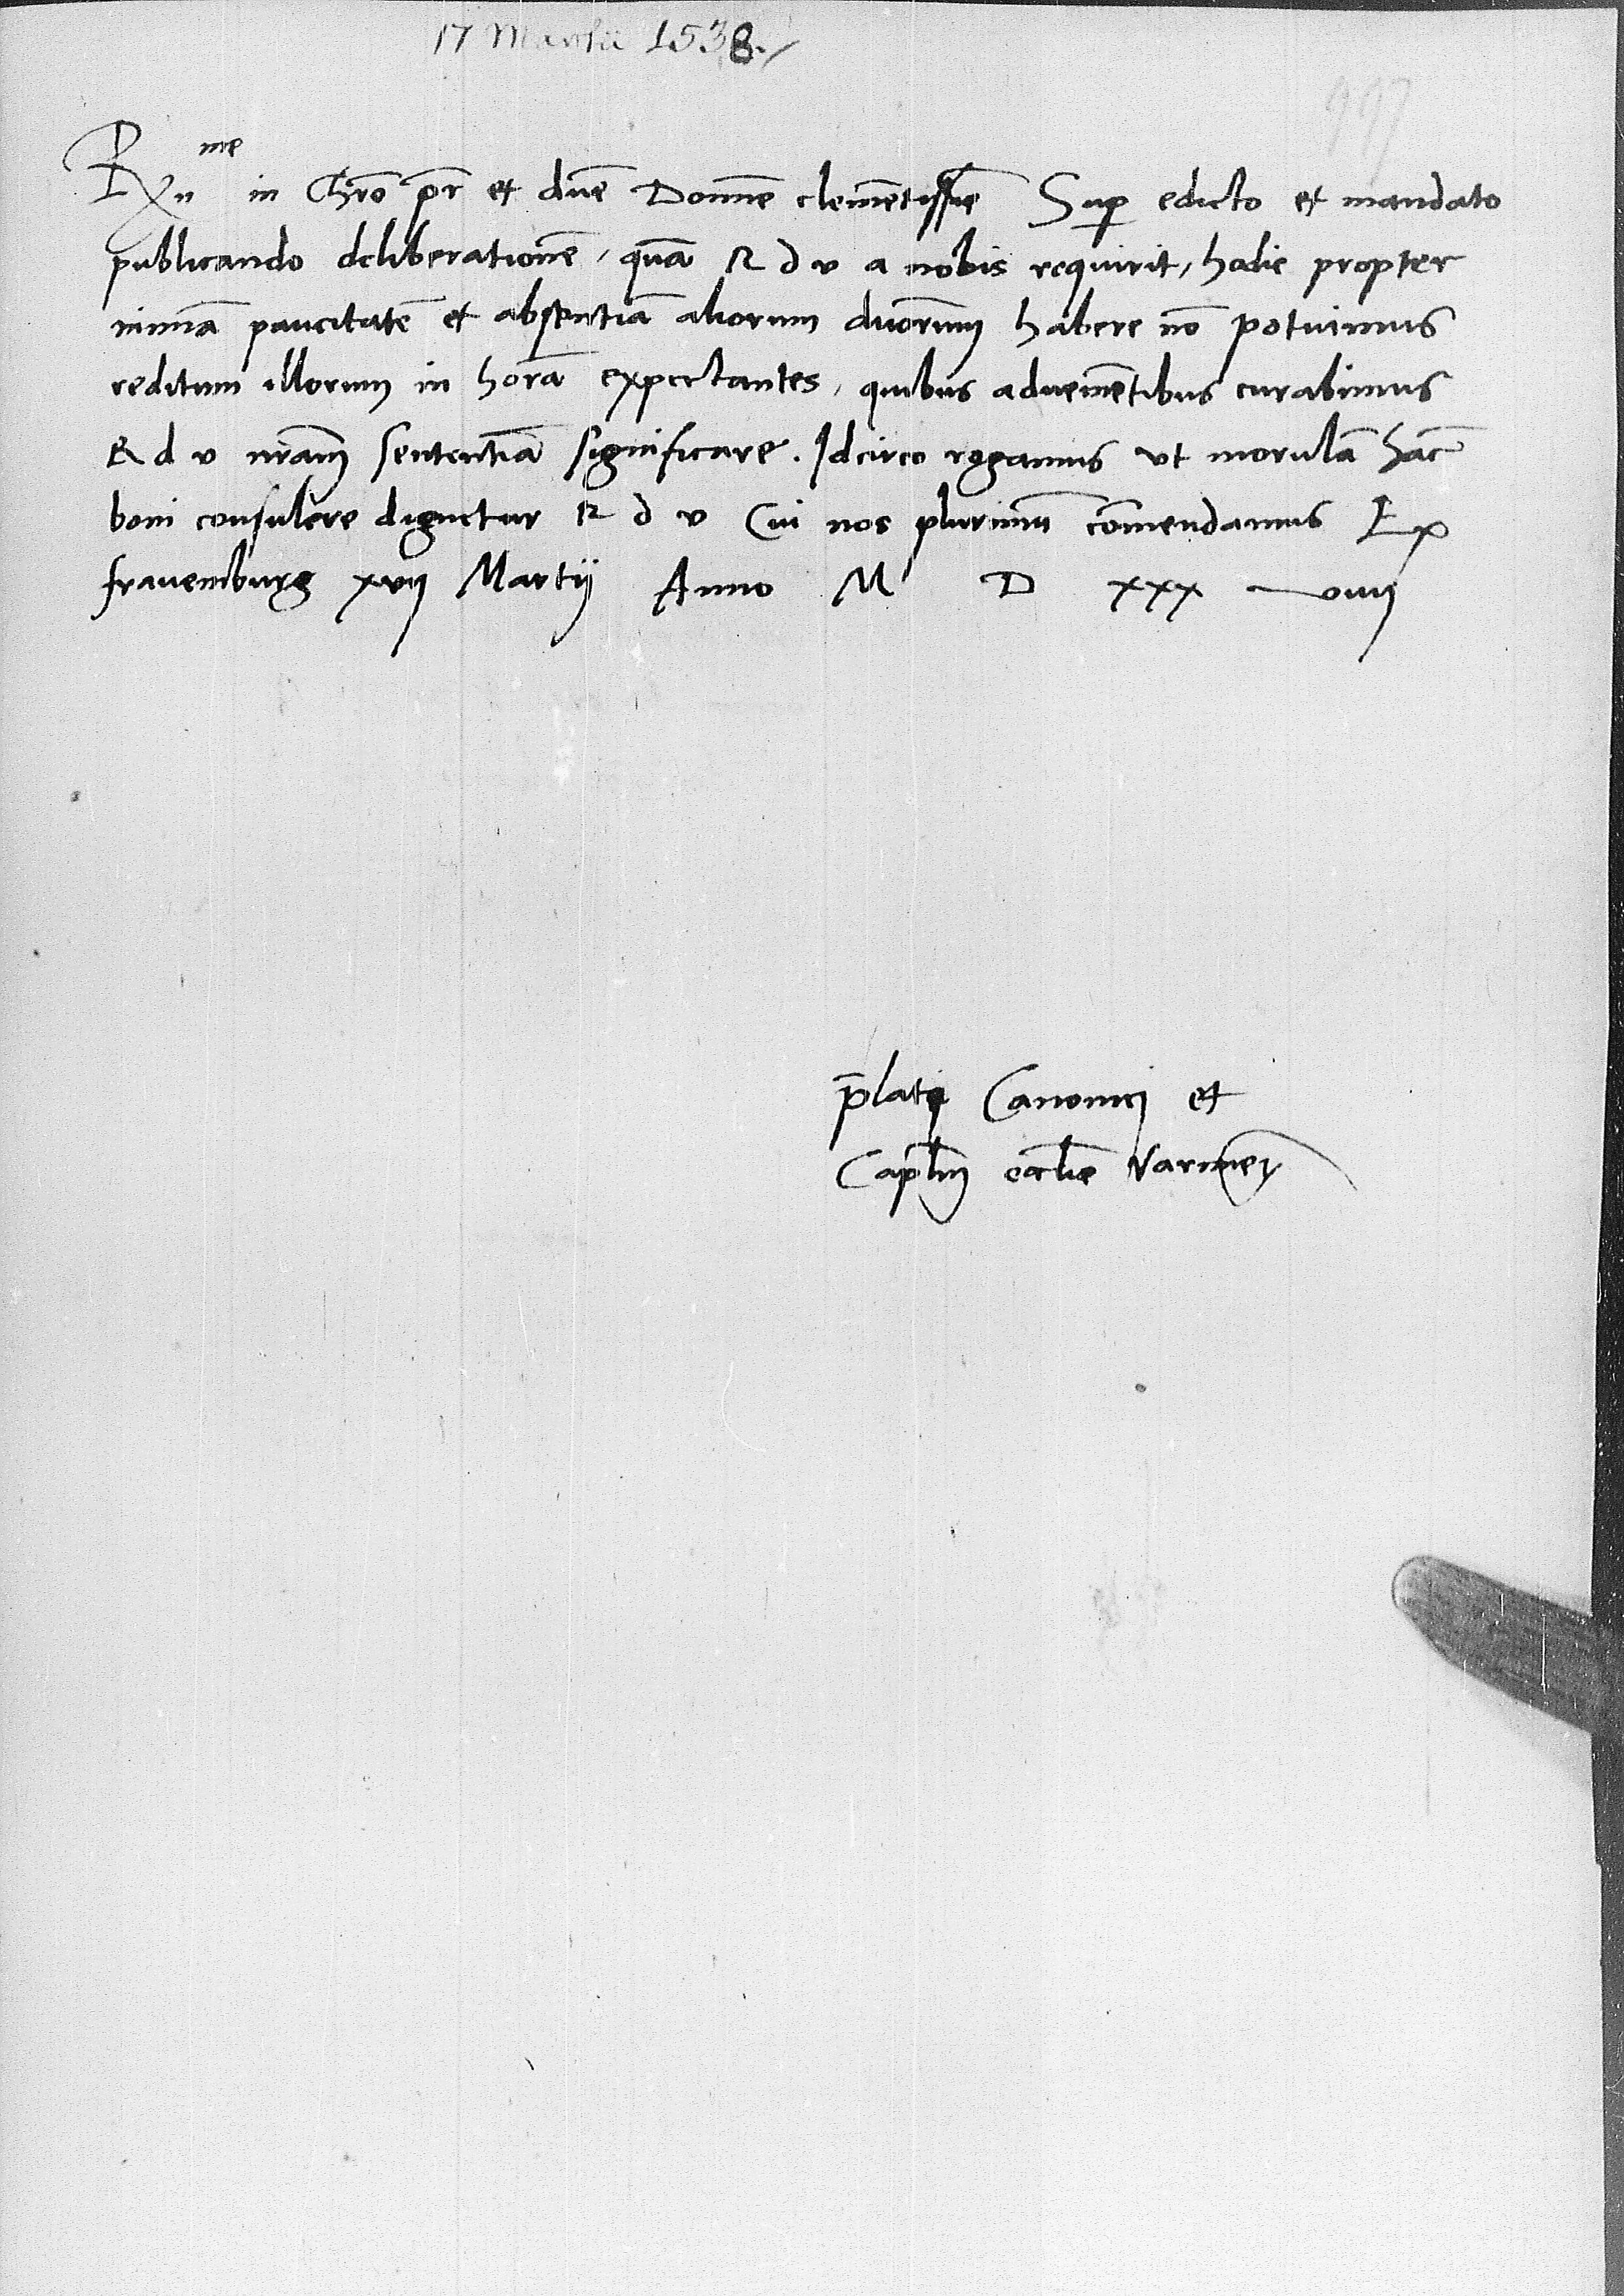 17 Martii 1538.
997
Rx̄n me in Chro pr et dne Domine clementissīe Sup edicto et mandato
publicando deliberationē, quā R d v a nobis requirit, hodie propter
nimiā paucitatē et absentiā aliorum dnorum habere nō potuimus
reditum illorum in horā expectantes, quibus aduenientibus curabimus
R d v nram sententiā significare. Idcirco rogamus vt morulā hāc
boni consulere dignetur R d v Cui nos plurimū cōmendamus Ex
frauemburg xvij Martij Anno M D xxx viij
p̄lati Canonici et
Caplm eccliē Varmien